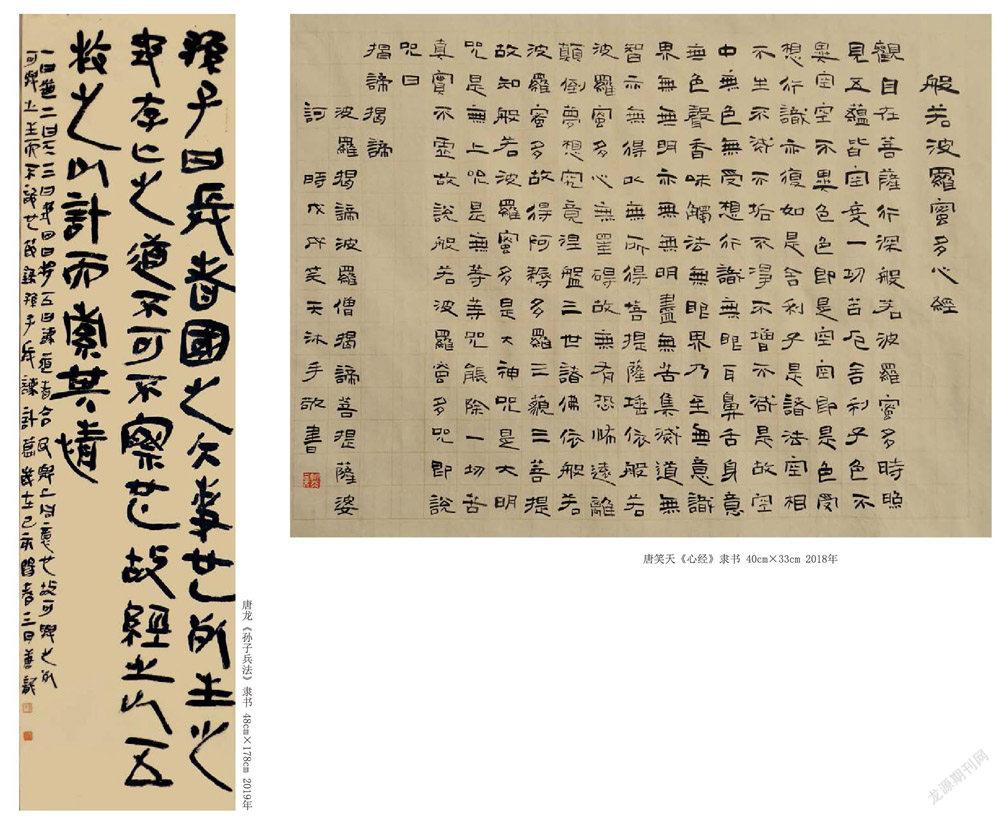 孫子曰兵者國之大事也死生之
地存亡之道不可不察也故經之以五
校之以計而索其情
一曰道二曰天三曰地四曰將五曰法道者令民與上同意也故可與之死
可與之生而不詭也節錄孫子兵法計篇歲在己亥陽春三月唐龍
唐龙《孙子兵法》隶书 48cm×178cm 2019年
般若波羅蜜多心經
觀自在菩薩行深般若波羅蜜多時照
見五蘊皆空度一切苦厄舍利子色不
異空空不異色色即是空空即是色受
想行識亦復如是舍利子是諸法空相
不生不滅不垢不淨不增不減是故空
中無色無受想行識無眼耳鼻舌身意
無色聲香味觸法無眼界乃至無意識
界無無明亦無無明盡無苦集滅道無
智亦無得以無所得菩提薩埵依般若
波羅蜜多心無罣碍故無有恐怖遠離
顛倒夢想究竟涅盤三世諸佛依般若
波羅蜜多故得阿耨多羅三藐三菩提
故知般若波羅蜜多是大神咒是大明
咒是無上咒是無等等咒能除一切苦
真實不虛故說般若波羅蜜多咒即說
咒曰
揭諦揭諦
波羅揭諦波羅僧揭諦菩提薩婆
訶 時戊戌笑天沐手敬書
唐笑天《心经》隶书 40cm×33cm 2018年
龙源期刊网